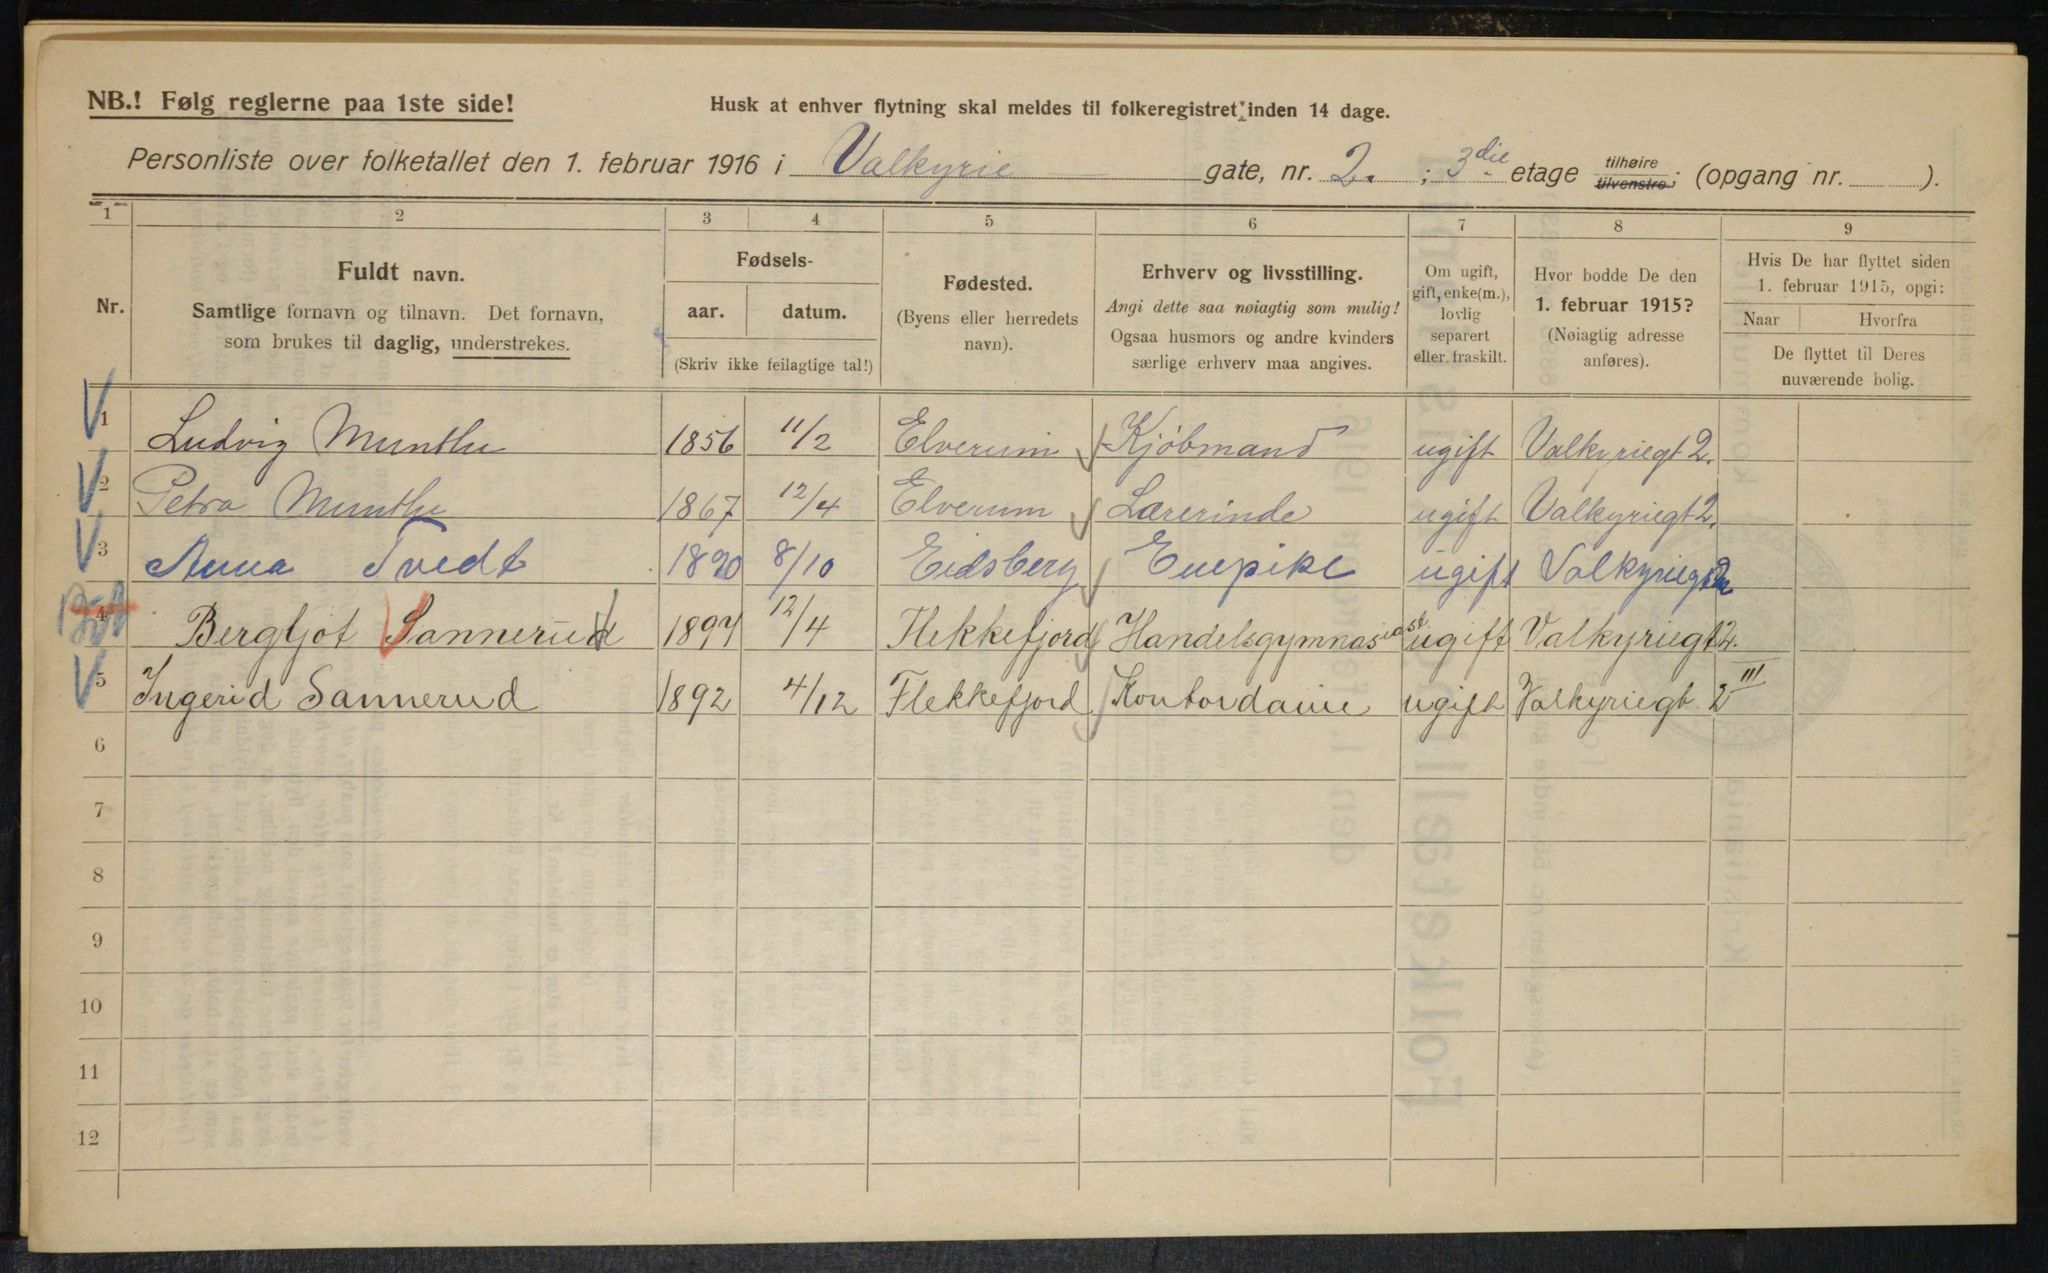 NB.! Følg reglerne paa 1ste side!
Husk at enhver flytning skal meldes til folkeregistret inden 14 dage.
Personliste over folketallet den 1. februar 1916 i Valkyrie gate, nr. 2. ; 3die etage tilhøire tilvenstre; (opgang nr. ).
1 2 3 4 5 6 7 8 9
Nr.
Fuldt navn.
Samtlige fornavn og tilnavn. Det fornavn,
som brukes til daglig, understrekes.
Fødsels-
aar. datum.
(Skriv ikke feilagtige tal!)
Fødested.
(Byens eller herredets
navn).
Erhverv og livsstilling.
Angi dette saa nøiagtig som mulig!
Ogsaa husmors og andre kvinders
særlige erhverv maa angives.
Om ugift,
gift, enke(m.),
lovlig
separert
eller fraskilt.
Hvor bodde De den
1. februar 1915?
(Nøiagtig adresse
anføres).
Hvis De har flyttet siden
1. februar 1915, opgi:
Naar Hvorfra
De flyttet til Deres
nuværende bolig.
1 Ludvig Munthe 1856 11/2 Elverum Kjøbmand ugift Valkyriegt 2.
2 Petra Munthe 1867 12/4 Elverum Lærerinde ugift Valkyriegt 2.
3 Anna Tvedt 1890 8/10 Eidsberg Enepike ugift Valkyriegt 2
4 Bergljot Sannerud 1897 12/4 Flekkefjord Handelsgymnasiast ugift Valkyriegt 2.
5 Ingerid Sannerud 1892 4/12 Flekkefjord Kontordame ugift Valkyriegt. 2 III
6
7
8
9
10
11
12